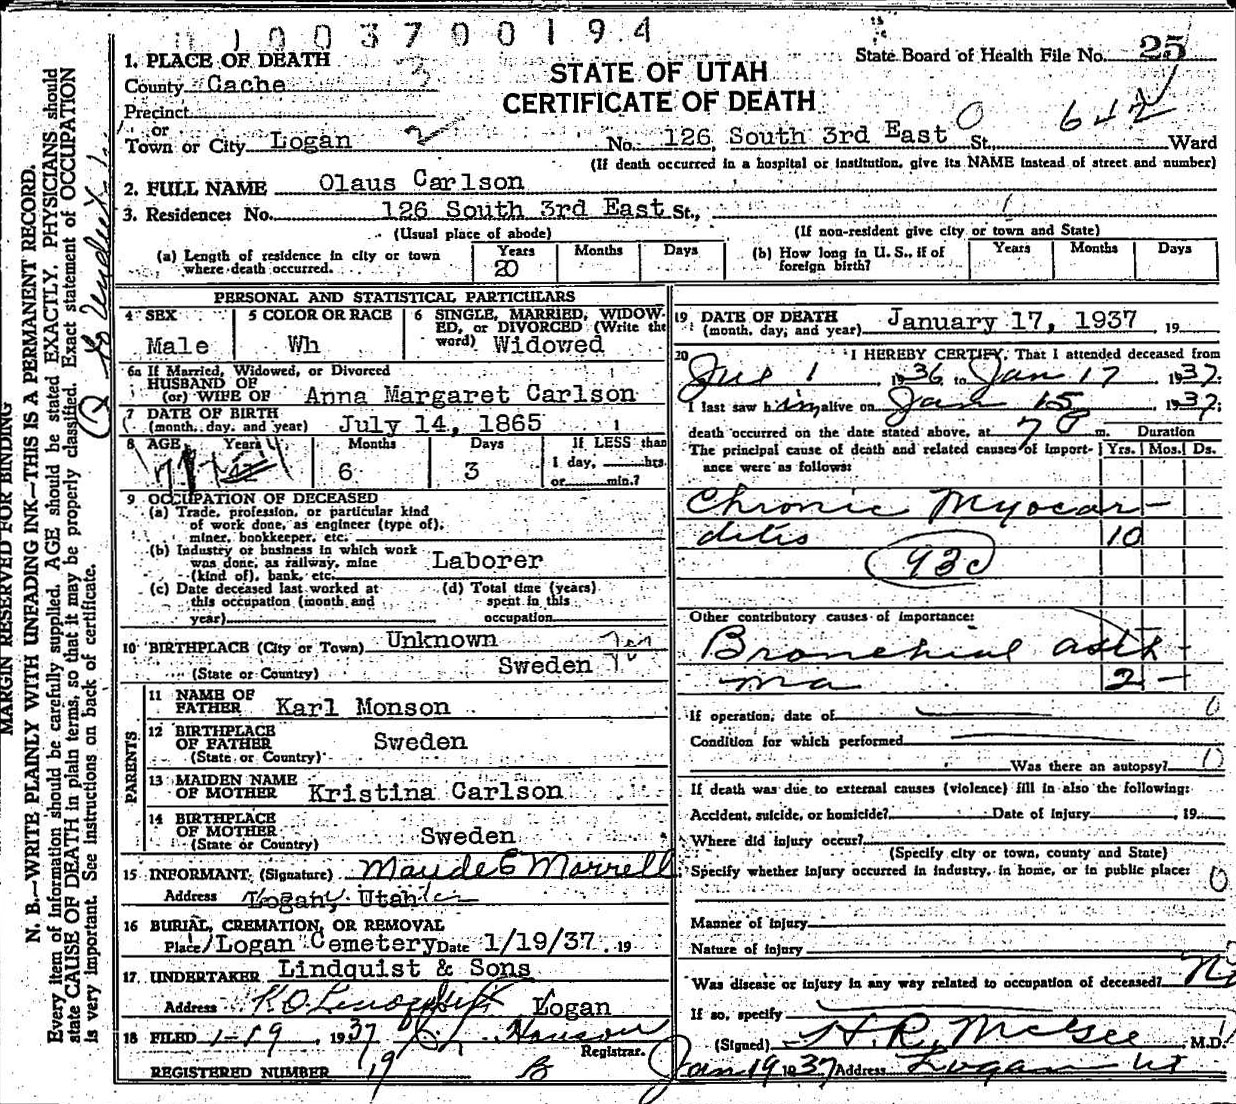 1003700194
State Board of Health File No. 25
1. PLACE OF DEATH
STATE OF UTAH
County Cache 3
CERTIFICATE OF DEATH
Precinct
or
Town or City Logan 2 No. 126 South 3rd East St., Ward
642
(If death occurred in a hospital or institution, give its NAME instead of street and number)
2. FULL NAME Olaus Carlson
3. Residence: No. 126 South 3rd East St.,
(Usual place of abode) (If non-resident give city or town and State)
(a) Length of residence in city or town where death occurred. Years 20 Months Days (b) How long in U. S., if of foreign birth? Years Months Days
PERSONAL AND STATISTICAL PARTICULARS
4 SEX 5 COLOR OR RACE 6 SINGLE, MARRIED, WIDOW-
ED, or DIVORCED (Write the
word)
Male Wh Widowed
6a If Married, Widowed, or Divorced
HUSBAND OF
(or) WIFE OF Anna Margaret Carlson
7 DATE OF BIRTH
(month, day, and year) July 14, 1865
8 AGE Years Months Days If LESS than
6 3 1 day, hrs.
or min.?
9 OCCUPATION OF DECEASED
(a) Trade, profession, or particular kind
of work done, as engineer (type of),
miner, bookkeeper, etc.
(b) Industry or business in which work
was done, as railway, mine
(kind of), bank, etc. Laborer
(c) Date deceased last worked at
this occupation (month and
year)
(d) Total time (years)
spent in this
occupation
10 BIRTHPLACE (City or Town) Unknown
(State or Country) Sweden
PARENTS
11 NAME OF
FATHER Karl Monson
12 BIRTHPLACE
OF FATHER Sweden
(State or Country)
13 MAIDEN NAME
OF MOTHER Kristina Carlson
14 BIRTHPLACE
OF MOTHER Sweden
(State or Country)
15 INFORMANT (Signature) Maude E Morrell
Address Logan, Utah
16 BURIAL, CREMATION, OR REMOVAL
Place Logan Cemetery Date 1/19/37 . 19
17 UNDERTAKER Lindquist & Sons
Address Logan
18 FILED 1-19 1937
Registrar.
REGISTERED NUMBER 19
19 DATE OF DEATH
(month, day, and year) January 17, 1937 , 19
20 I HEREBY CERTIFY, That I attended deceased from
1 1936 to Jan 17 1937;
I last saw him alive on Jan 15 1937;
death occurred on the date stated above, at 7 m. Duration
The principal cause of death and related causes of import-
ance were as follows: Yrs. Mos. Ds.
Chronic Myocar-
ditis 10
93c
Other contributory causes of importance:
Bronchial asth-
ma 2 -
If operation, date of 0
Condition for which performed
Was there an autopsy? 0
If death was due to external causes (violence) fill in also the following:
Accident, suicide, or homicide? Date of Injury , 19
Where did injury occur?
(Specify city or town, county and State)
Specify whether injury occurred in industry, in home, or in public place: 0
Manner of injury
Nature of injury
Was disease or injury in any way related to occupation of deceased? No
If so, specify
(Signed) H. R. McGee , M.D.
Jan 19 1937 Address Logan Ut
MARGIN RESERVED FOR BINDING
N. B.—WRITE PLAINLY WITH UNFADING INK—THIS IS A PERMANENT RECORD.
Every item of information should be carefully supplied. AGE should be stated EXACTLY. PHYSICIANS should
state CAUSE OF DEATH in plain terms, so that it may be properly classified. Exact statement of OCCUPATION
is very important. See instructions on back of certificate.